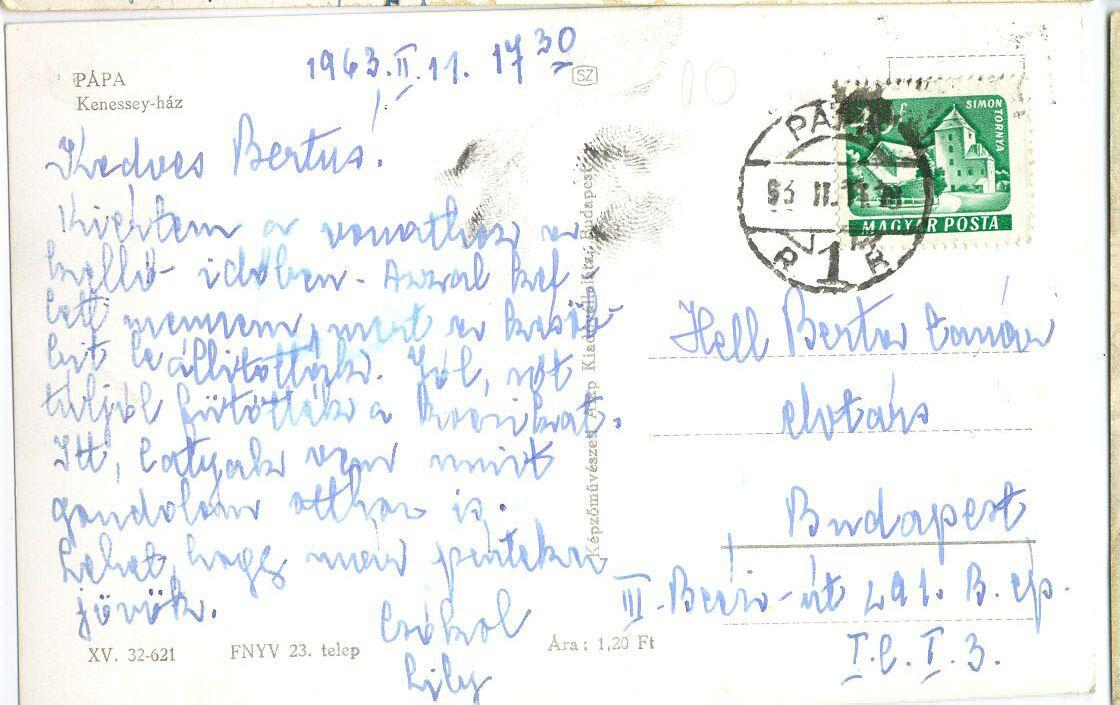 PÁPA
Kenessey-ház
1963. II. 11. 17 30
SZ
Kedves Bertus!
Kiértem a vonathoz a
kellő időben. Azzal kel-
lett mennem, mert a
leállították. Jól, sőt
túljól fűtötték a kocsikat.
Itt, latyak van mint
gondolom otthon is.
Lehet, hogy már pénteken
jövök.
Csókol
Lily
XV. 32-621
FNYV 23. telep
Ára: 1,20 Ft
Képzőművészeti Alap Kiadóvállalata, Budapest
SIMONTORNYA
MAGYAR POSTA
PÁPA
63 II. 11.
1
Hell Berta tanár
elvtárs
Budapest
III. Bécsi-út 291. B. ép.
I. l. I. 3.